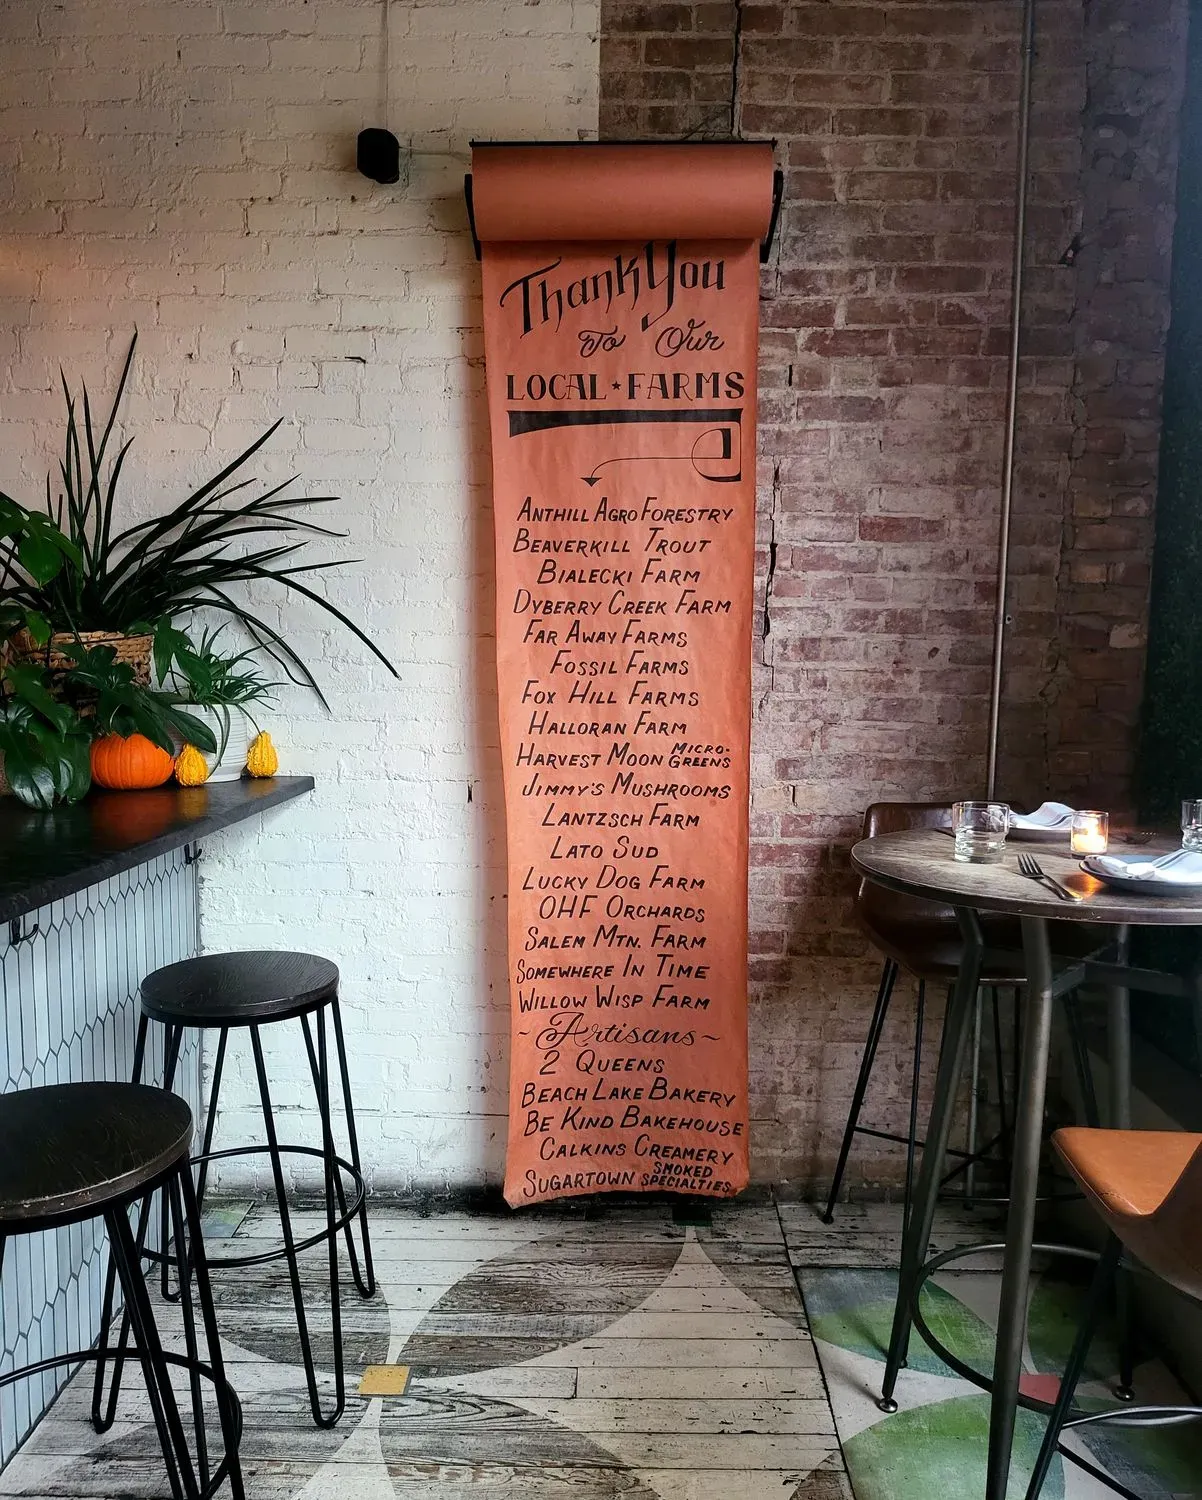 Thank You
To Our
LOCAL ★ FARMS
ANTHILL AGROFORESTRY
BEAVERKILL TROUT
BIALECKI FARM
DYBERRY CREEK FARM
FAR AWAY FARMS
FOSSIL FARMS
FOX HILL FARMS
HALLORAN FARM
HARVEST MOON MICRO-GREENS
JIMMY'S MUSHROOMS
LANTZSCH FARM
LATO SUD
LUCKY DOG FARM
OHF ORCHARDS
SALEM MTN. FARM
SOMEWHERE IN TIME
WILLOW WISP FARM
~Artisans~
2 QUEENS
BEACH LAKE BAKERY
BE KIND BAKEHOUSE
CALKINS CREAMERY
SUGARTOWN SMOKED SPECIALTIES